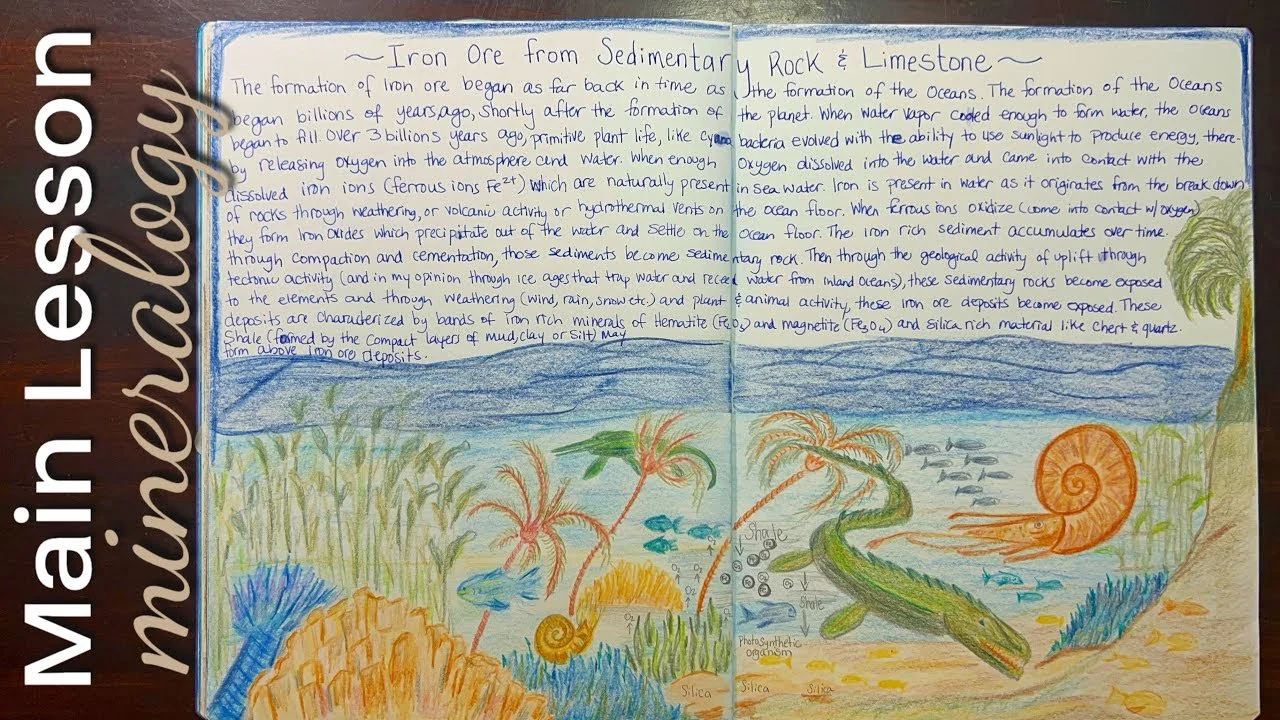 Main Lesson
mineralogy
~ Iron Ore from Sedimentary Rock & Limestone ~
The formation of Iron ore began as far back in time as the formation of the Oceans. The formation of the Oceans
began billions of years ago, Shortly after the formation of the planet. When Water Vapor cooled enough to form water, the oceans
began to fill. Over 3 billions years ago, primitive plant life, like cyanobacteria evolved with the ability to use sunlight to produce energy, there-
by releasing oxygen into the atmosphere and water. When enough Oxygen dissolved into the water and came into contact with the
dissolved iron ions (ferrous ions Fe²⁺) which are naturally present in sea water. Iron is present in water as it originates from the break down
of rocks through weathering, or volcanic activity or hydrothermal vents on the ocean floor. When ferrous ions oxidize (come into contact w/ oxygen)
they form Iron Oxides which precipitate out of the water and settle on the Ocean floor. The iron rich sediment accumulates over time.
through compaction and cementation, those sediments become sedimentary rock. Then through the geological activity of uplift through
tectonic activity (and in my opinion through ice ages that trap water and water from inland oceans), these sedimentary rocks become exposed
to the elements and through weathering (wind, rain, snow etc.) and plant & animal activity, these iron ore deposits become exposed. These
deposits are characterized by bands of iron rich minerals of Hematite and magnetite (Fe₃O₄) and silica rich material like Chert & quartz.
Shale (formed by the compact layers of mud, clay or silt) may
form above Iron ore deposits.
Shale
O₂
O₂
O₂
O₂
Shale
Photosynthetic
organism
Silica
Silica
Silica